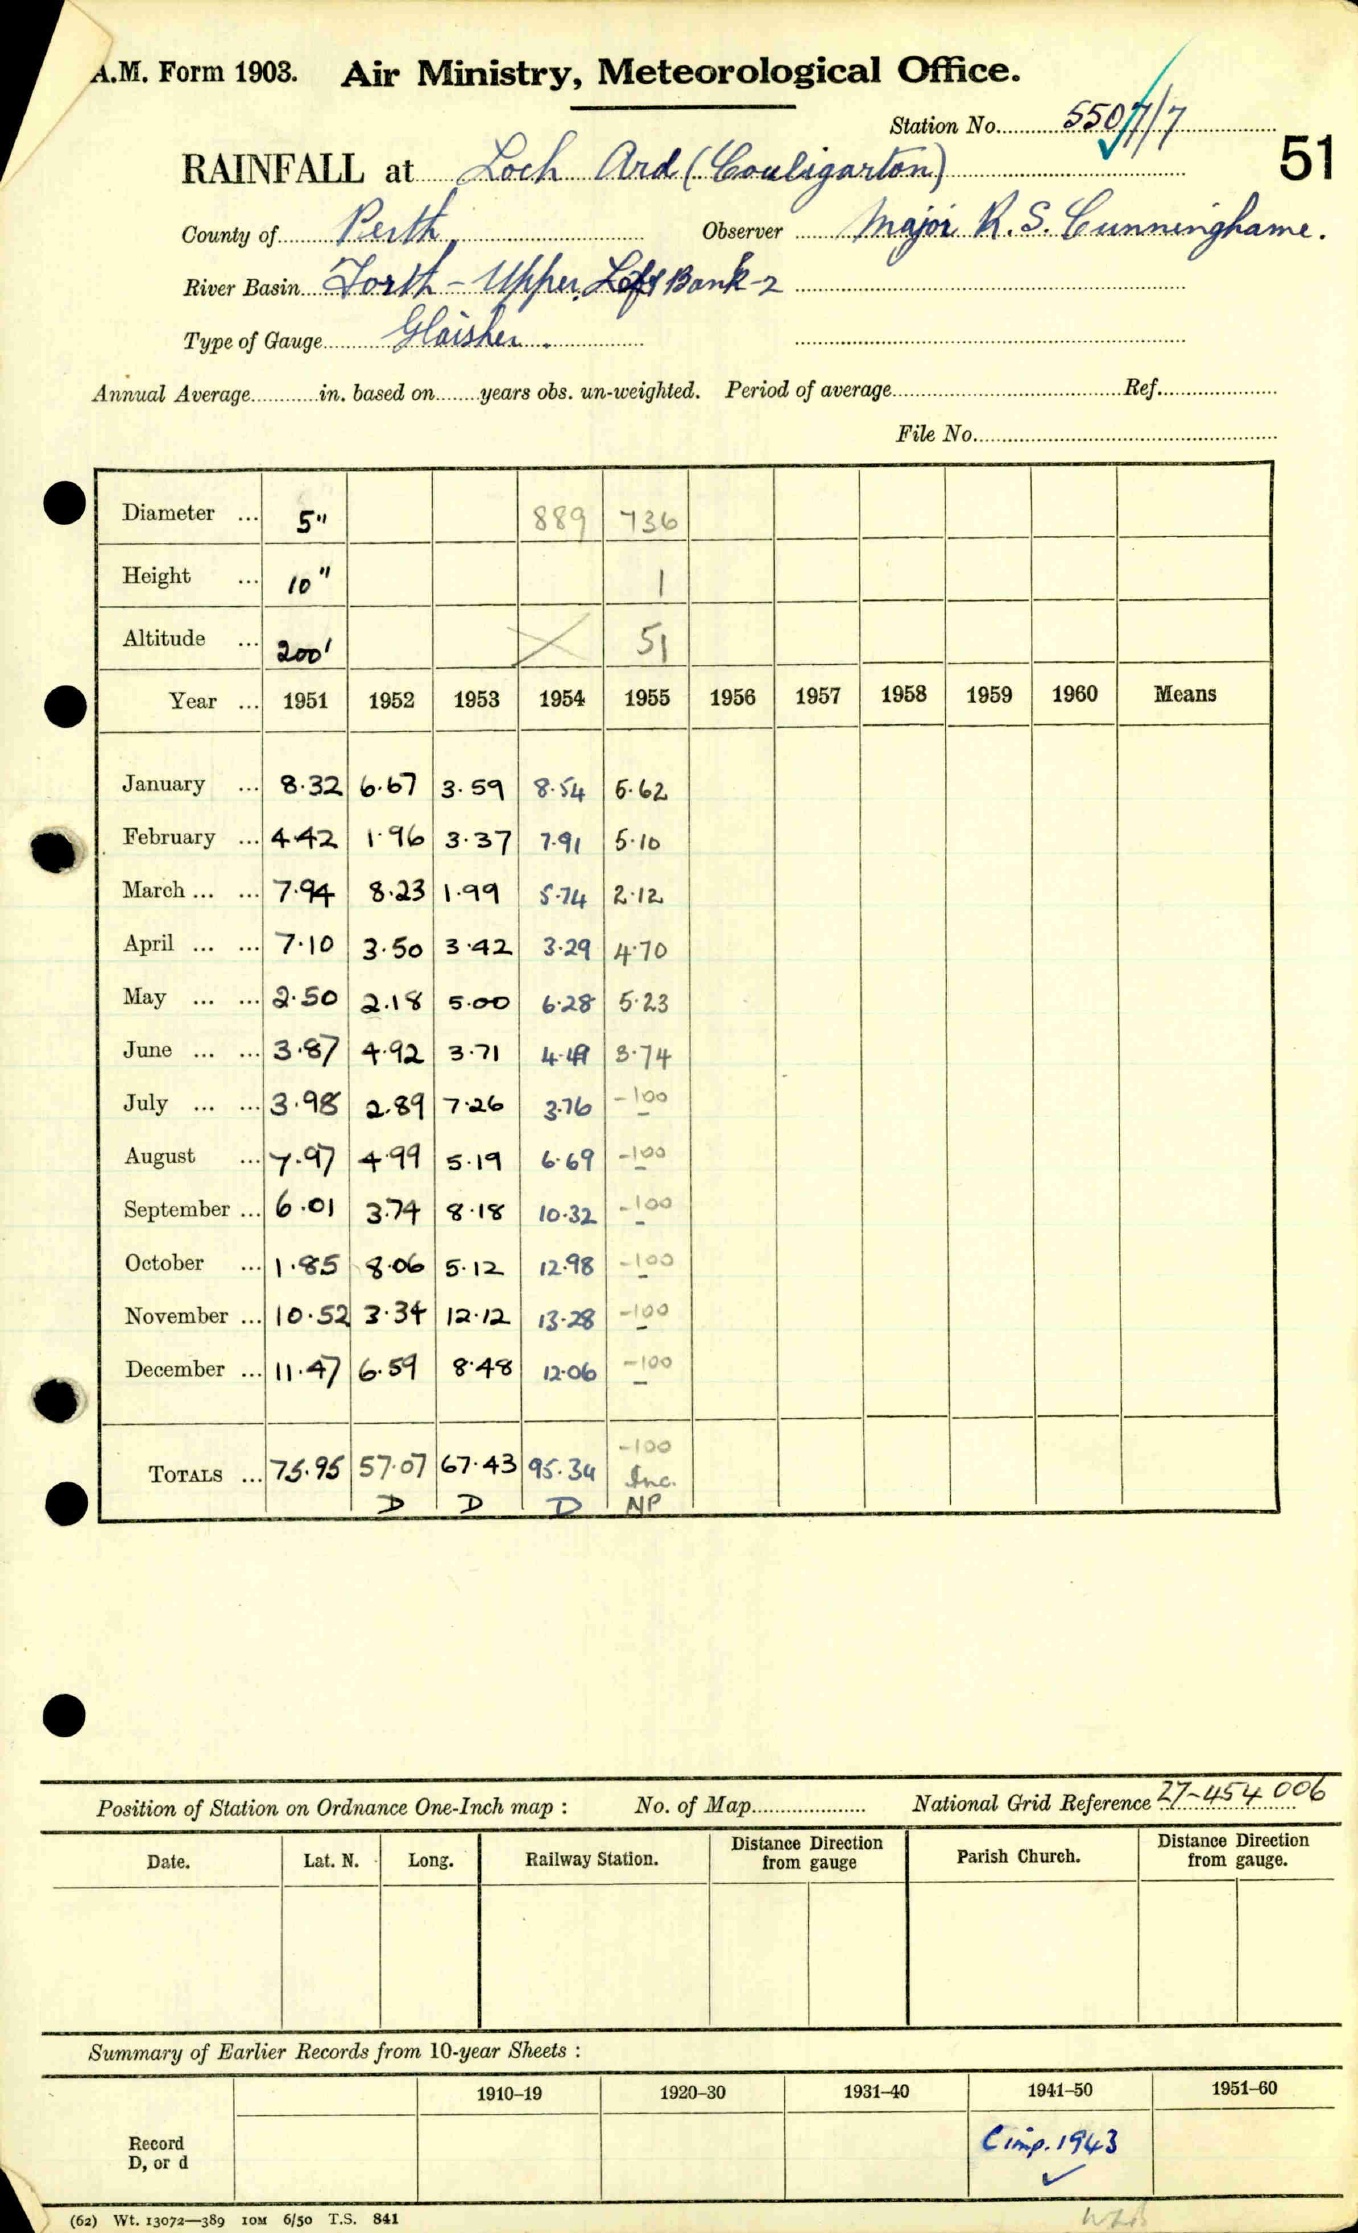 A.M. Form 1903. Air Ministry, Meteorological Office.
Station No. 5507/7
51
RAINFALL at Loch Ard (Couligarton)
County of Perth Observer Major R. S. Cunninghame.
River Basin Forth - Upper, Left Bank-2
Type of Gauge Glaisher.
Annual Average in. based on years obs. un-weighted. Period of average Ref.
File No.
Diameter ... 5" 889 736
Height ... 10" 1
Altitude ... 200' 51
Year ... 1951 1952 1953 1954 1955 1956 1957 1958 1959 1960 Means
January ... 8.32 6.67 3.59 8.54 5.62
February ... 4.42 1.96 3.37 7.91 5.10
March ... ... 7.94 8.23 1.99 5.74 2.12
April ... ... 7.10 3.50 3.42 3.29 4.70
May ... ... 2.50 2.18 5.00 6.28 5.23
June ... ... 3.87 4.92 3.71 4.49 3.74
July ... ... 3.98 2.89 7.26 3.76 -100
August ... 7.97 4.99 5.19 6.69 -100
September ... 6.01 3.74 8.18 10.32 -100
October ... 1.85 8.06 5.12 12.98 -100
November ... 10.52 3.34 12.12 13.28 -100
December ... 11.47 6.59 8.48 12.06 -100
-100
TOTALS ... 75.95 57.07 67.43 95.34 Inc.
D D D NP
Position of Station on Ordnance One-Inch map : No. of Map National Grid Reference 27-454 006
Date. Lat. N. Long. Railway Station. Distance Direction from gauge Parish Church. Distance Direction from gauge.
Summary of Earlier Records from 10-year Sheets :
1910-19 1920-30 1931-40 1941-50 1951-60
Record
D, or d
C imp. 1943
(62) Wt. 13072—389 10M 6/50 T.S. 841